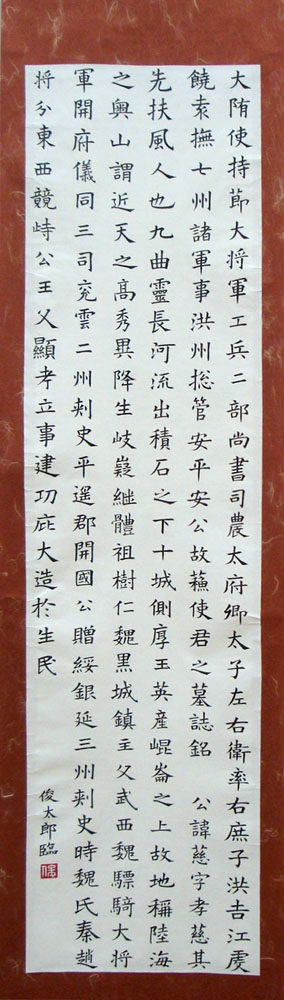 大隋使持節大將軍工兵二部尚書司農太府卿太子左右衛率右庶子洪吉江虔
饒袁撫七州諸軍事洪州捴管安平安公故蘓使君之墓誌銘　公諱慈字孝慈其
先扶風人也九曲靈長河流出積石之下十城側厚玉英産崐崙之上故地稱陸海
之輿山謂近天之髙秀異降生岐嶷継體祖樹仁魏黒城鎮主父武西魏驃騎大將
軍開府儀同三司兖雲二州刺史平遥郡開國公贈綏銀延三州刺史時魏氏秦趙
將分東西競峙公王父顯考立事建功庇大造於生民
俊太郎臨